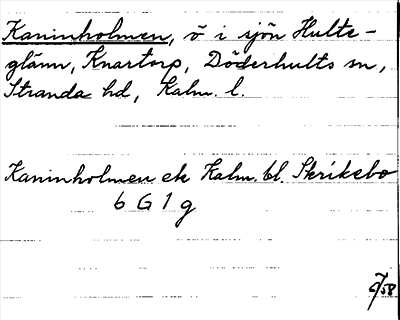 Kaninholmen, ö i sjön Hulte-
glänn, Knartorp, Döderhults sn,
Stranda hd, Kalm. l.
Kaninholmen ek Kalm. bl. Skrikebo
6 G 1 g